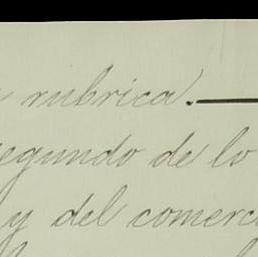 rubrica.
segundo de lo
y del comerc